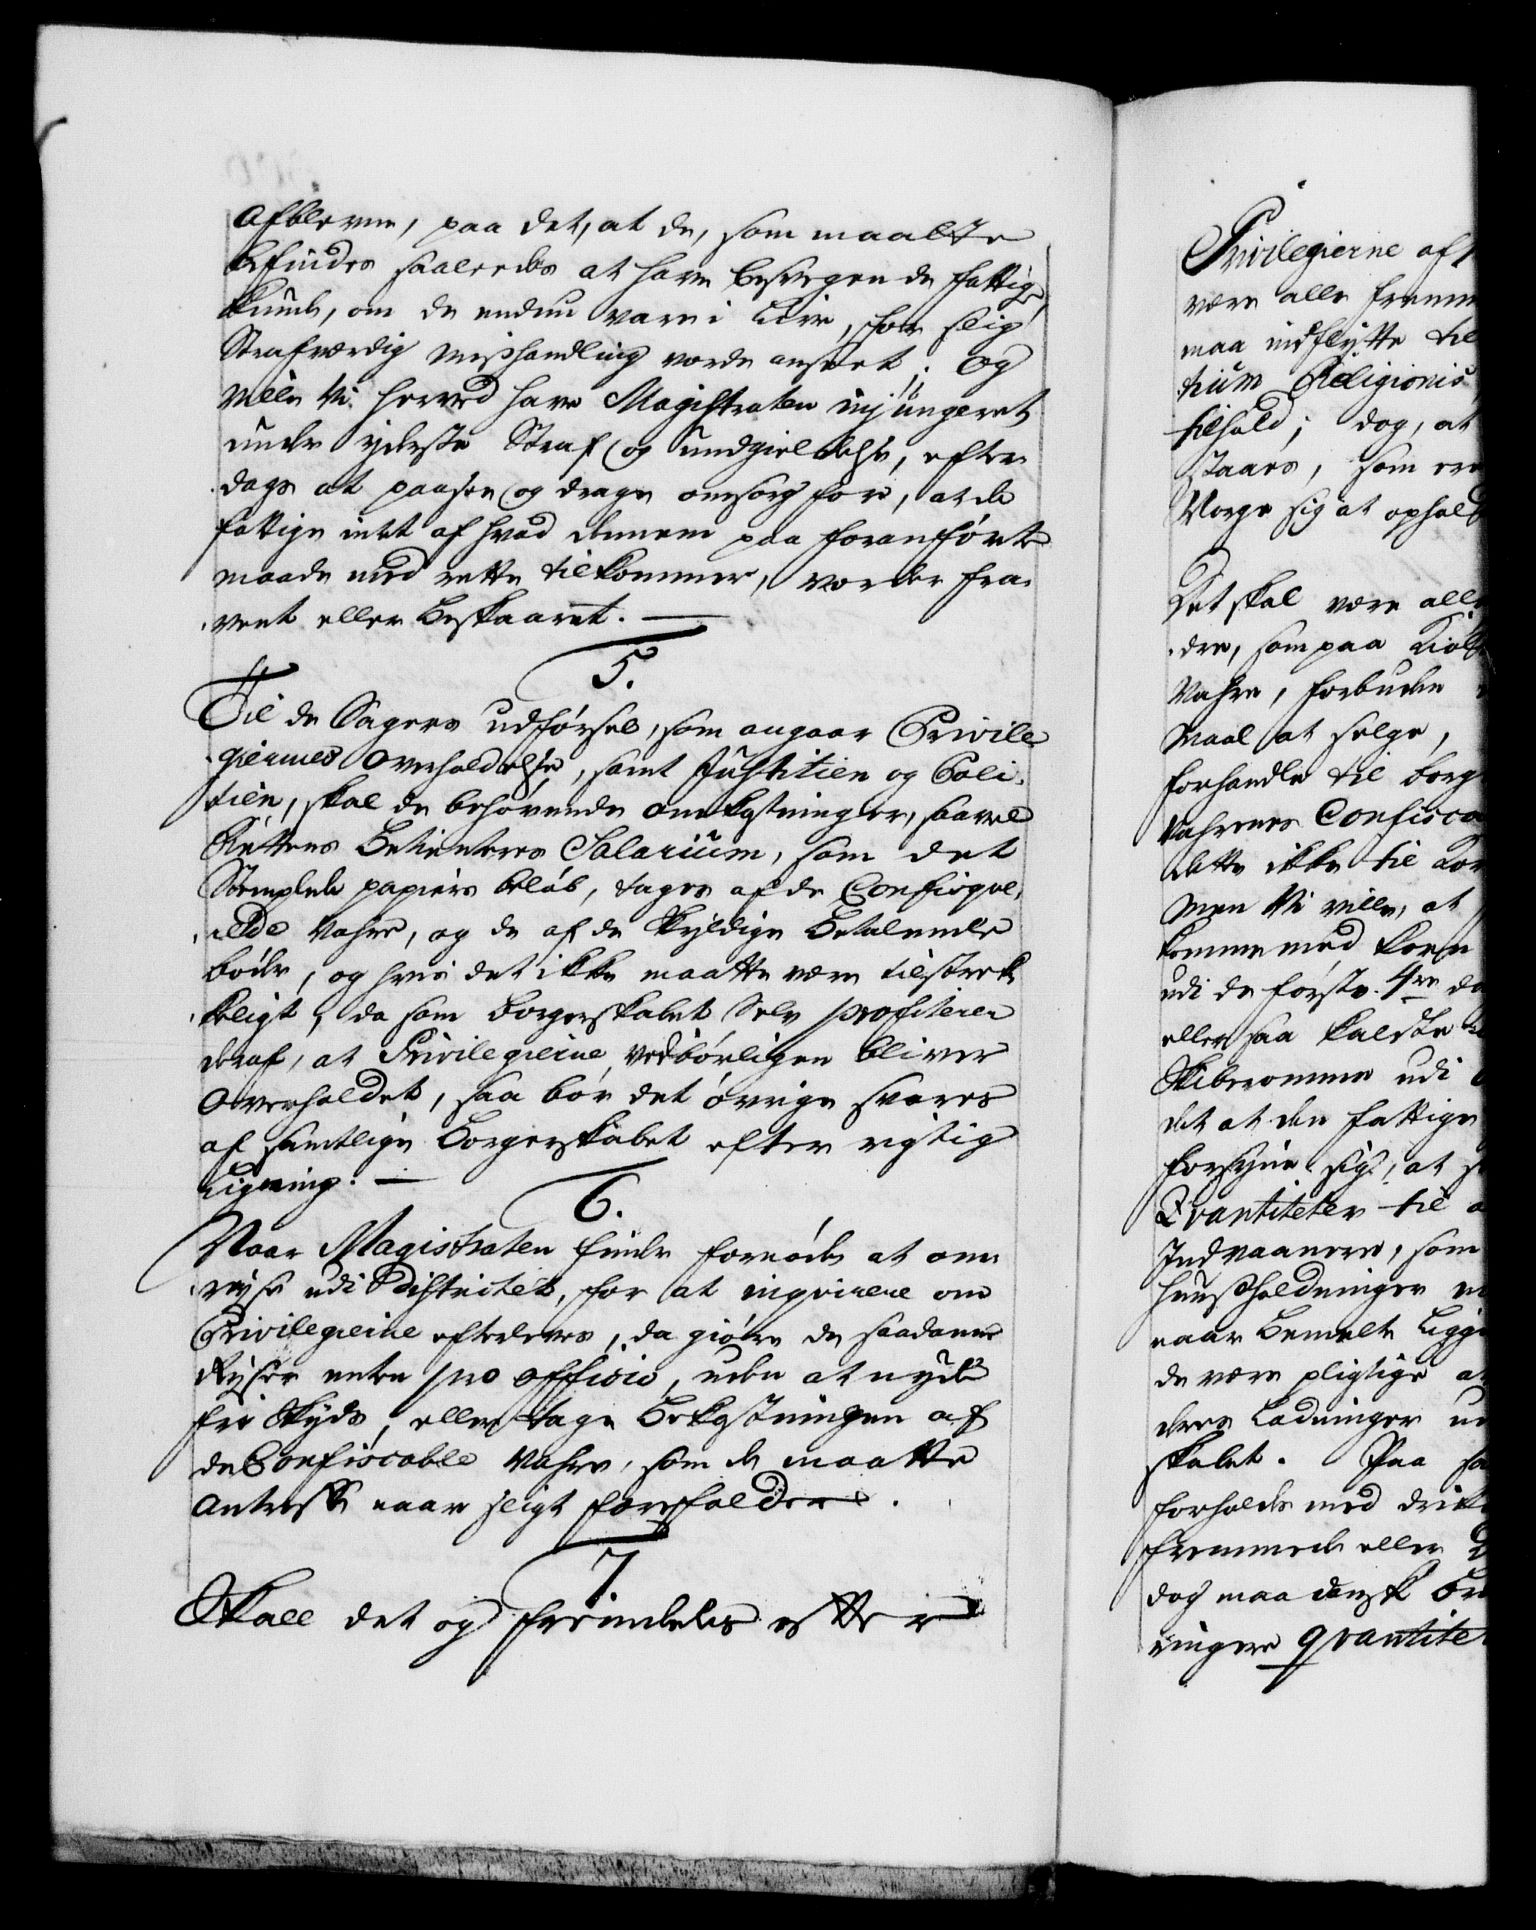 afblevne, paa det, at de, som maatte
befindes saaledes at have besvegen de fattige
kunde, om de endnu vare i Live, for slig
Strafværdig mishandling vorde anseet; og
ville Vi herved have Magistraten injüngeret
under yderste Straf og undgieldelse, efter
dags at paasee og drage omsorg for, at de
fattige intet af hvad dennem paa foranførte
maade med rette tilkommer, vorder fra-
vent eller beskaaret. —
5.
Til de Sagers udførsel, som angaar Privile
giernes overholdelse, samt Justitien og Poli-
tien, skal de behøvende omkostninger, saavel
Rettens betienteres Salarium, som det
Stemplede papiirs beløb, tages af de Confisque-
rede Vahre, og de af de skyldige betalende
bøder, og hvis det ikke maatte være tilstræk-
keligt, da som borgerskabet Selv profiterer
deraf, at Privilegierne vedbørligen bliver
overholdet, saa bør det øvrige svares
af samtlige borgerskabet efter rigtig
Ligning. —
6.
Naar Magistraten finder fornøden at om-
reyse udi Districtet, for at inqvirere om
Privilegierne efterleves, da giøre de saadanne
Reyser enten pro officio, uden at nyde
frie Skyds, eller tage bekostningen af
de Confiscable Vahre, som de maatte
antreffe naar sligt forefalder.
7.
Skall det og fremdeles efter
Privilegierne af
være alle fremm
maa indflytte til
tium Religionis
tilhold; dog, at
staaes, som ere
Norge sig at ophold
Det skal være alle
dre, som paa
Vahre, forbuden
Maal at selge,
forhandle til borg
Vahrenes Confisca
dette ikke til
men Vi ville, at
komme med korn
udi de første 4re da
eller saa kaldte
Skiberomme udi
det at den fattige
forsyne sig, at
Qvantiteter til
Indvaanere, som
huusholdninger
naar bemelte Ligge
de være pligtige at
deres Ladninger
skabet. Paa
forholdes med
fremmede eller
dog maa dansk
ringere qvantite